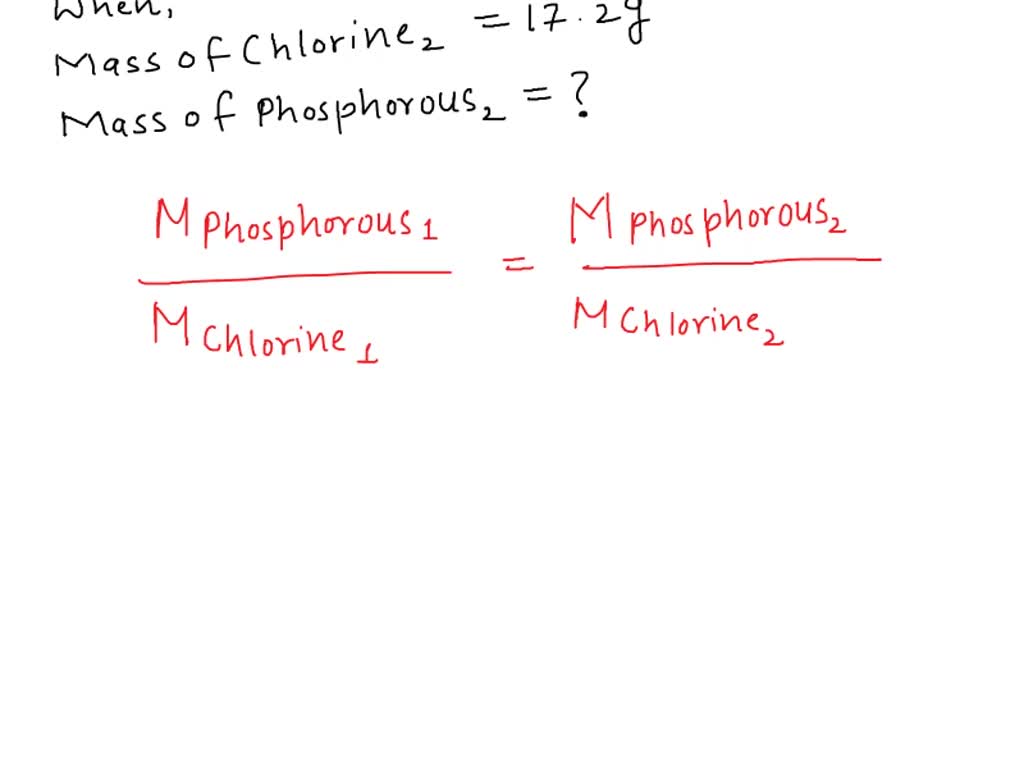 When,
Mass of Chlorine₂ = 17.2g
Mass of Phosphorous₂ = ?
M Phosphorous 1 / M Chlorine 1 = M Phosphorous₂ / M Chlorine₂